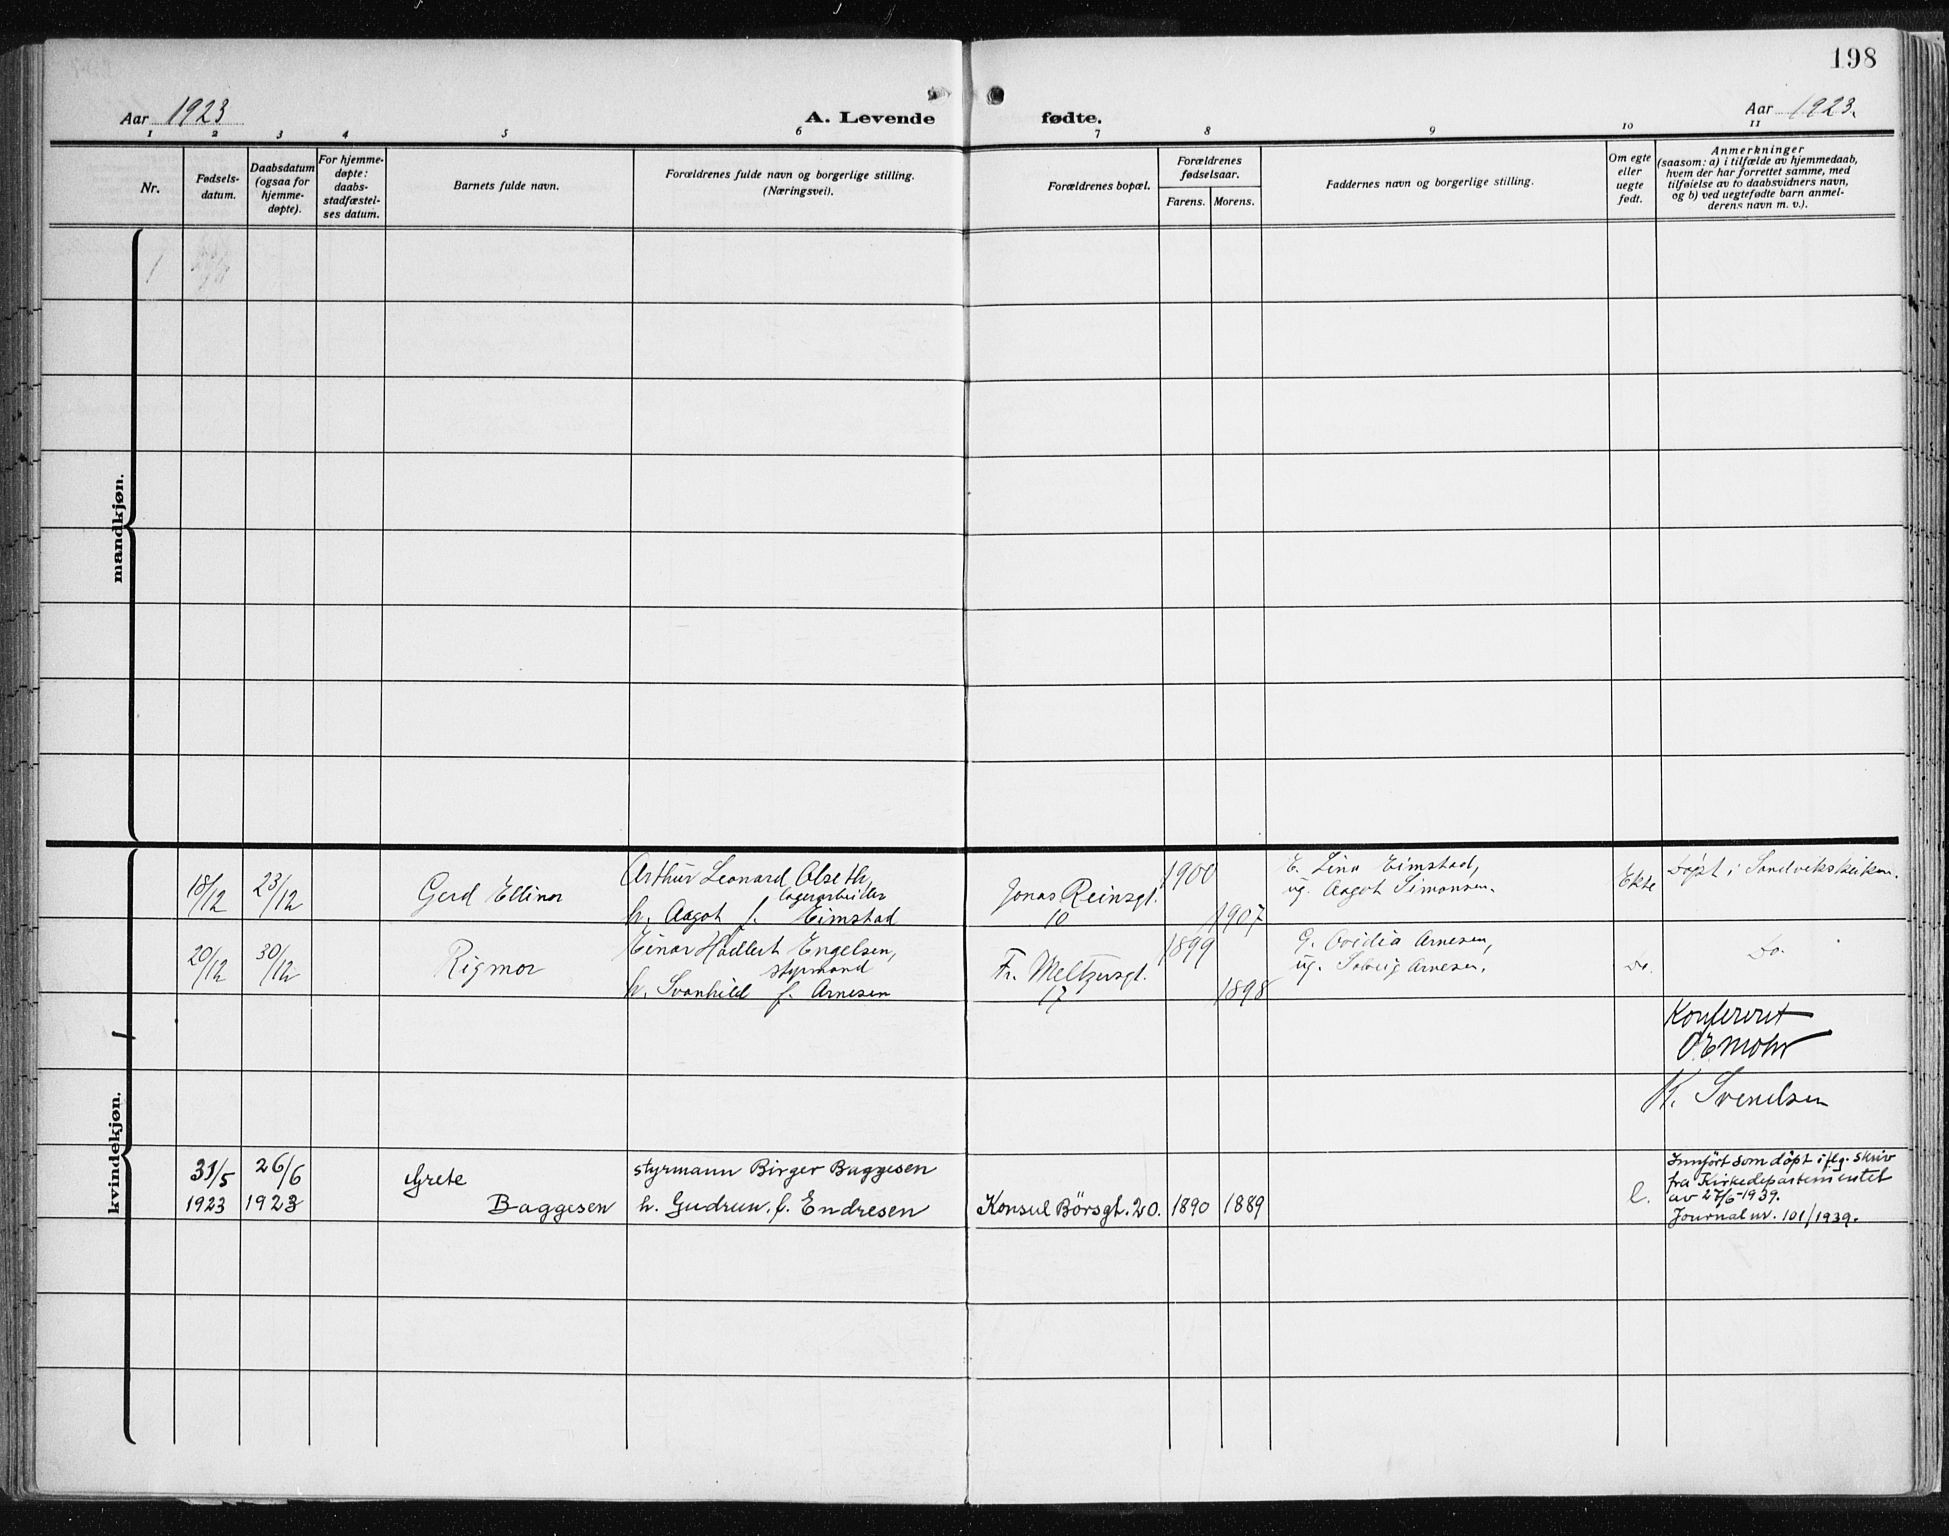 198
Aar 1923
A. Levende fødte.
Aar 1923.
1 2 3 4 5 6 7 8 9 10 11
Nr.
Fødsels-
datum.
Daabsdatum
(ogsaa for
hjemme-
døpte).
For hjemme-
døpte:
daabs-
stadfæstel-
ses datum.
Barnets fulde navn.
Forældrenes fulde navn og borgerlige stilling.
(Næringsvei).
Forældrenes bopæl.
Forældrenes
fødselsaar.
Farens. Morens.
Faddernes navn og borgerlige stilling.
Om egte
eller
uegte
født.
Anmerkninger
(saasom: a) i tilfælde av hjemmedaab,
hvem der har forrettet samme, med
tilføielse av to daabsvidners navn,
og b) ved uegtefødte barn anmel-
derens navn m. v.).
mandkjøn.
1
kvindekjøn.
18/12
23/12
Gerd Ellinor
Arthur Leonard Olseth,
lagerarbeider
h. Aagot f. Eimstad
Jonas Reinsgt.
10
1900
1907
E. Lina Eimstad,
ug. Aagot Simonsen.
Ekte
Døpt i Sandvikskirken.
20/12
30/12
Rigmor
Einar Hadlert Engelsen,
styrmand
h. Svanhild f. Arnesen
Fr. Meltzersgt.
17
1899
1898
G. Ovidia Arnesen,
ug. Solveig Arnesen.
do.
Do.
Konferert
O E Mohr
K. Svendsen
31/5
1923
26/6
1923
Grete
Baggesen
styrmann Birger Baggesen
h. Gudrun. f. Endresen
Konsul Börsgt. 20.
1890
1889
e.
Innført som döpt iflg. skriv
fra Kirkedepartementet
av 27/6-1939.
Journal nr. 101/1939.